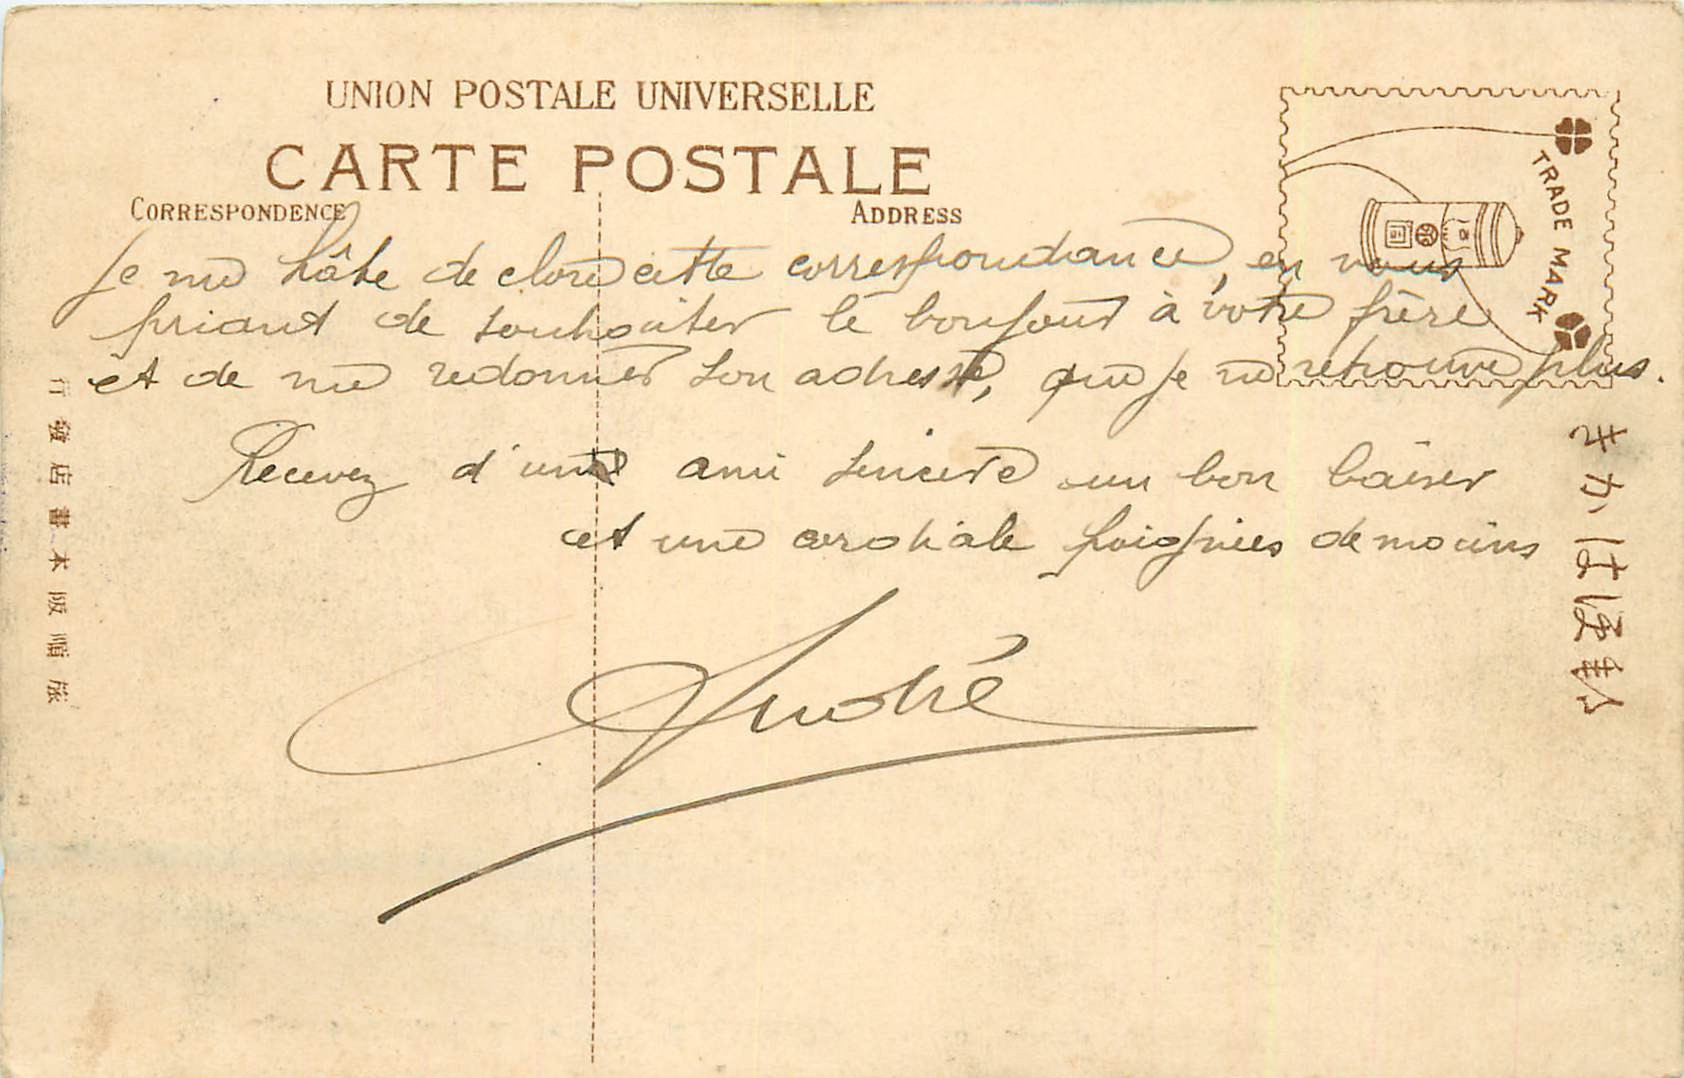 UNION POSTALE UNIVERSELLE
CARTE POSTALE
CORRESPONDENCE
ADDRESS
TRADE MARK
Je me hâte de clore cette correspondance, en vous
priant de souhaiter le bonjour à votre frère
et de me redonner son adresse, que je ne retrouve plus.
Recevez d'une ami sincère un bon baiser
et une cordiale poignées de mains
André
きかは便郵
行發店書本阪順旅